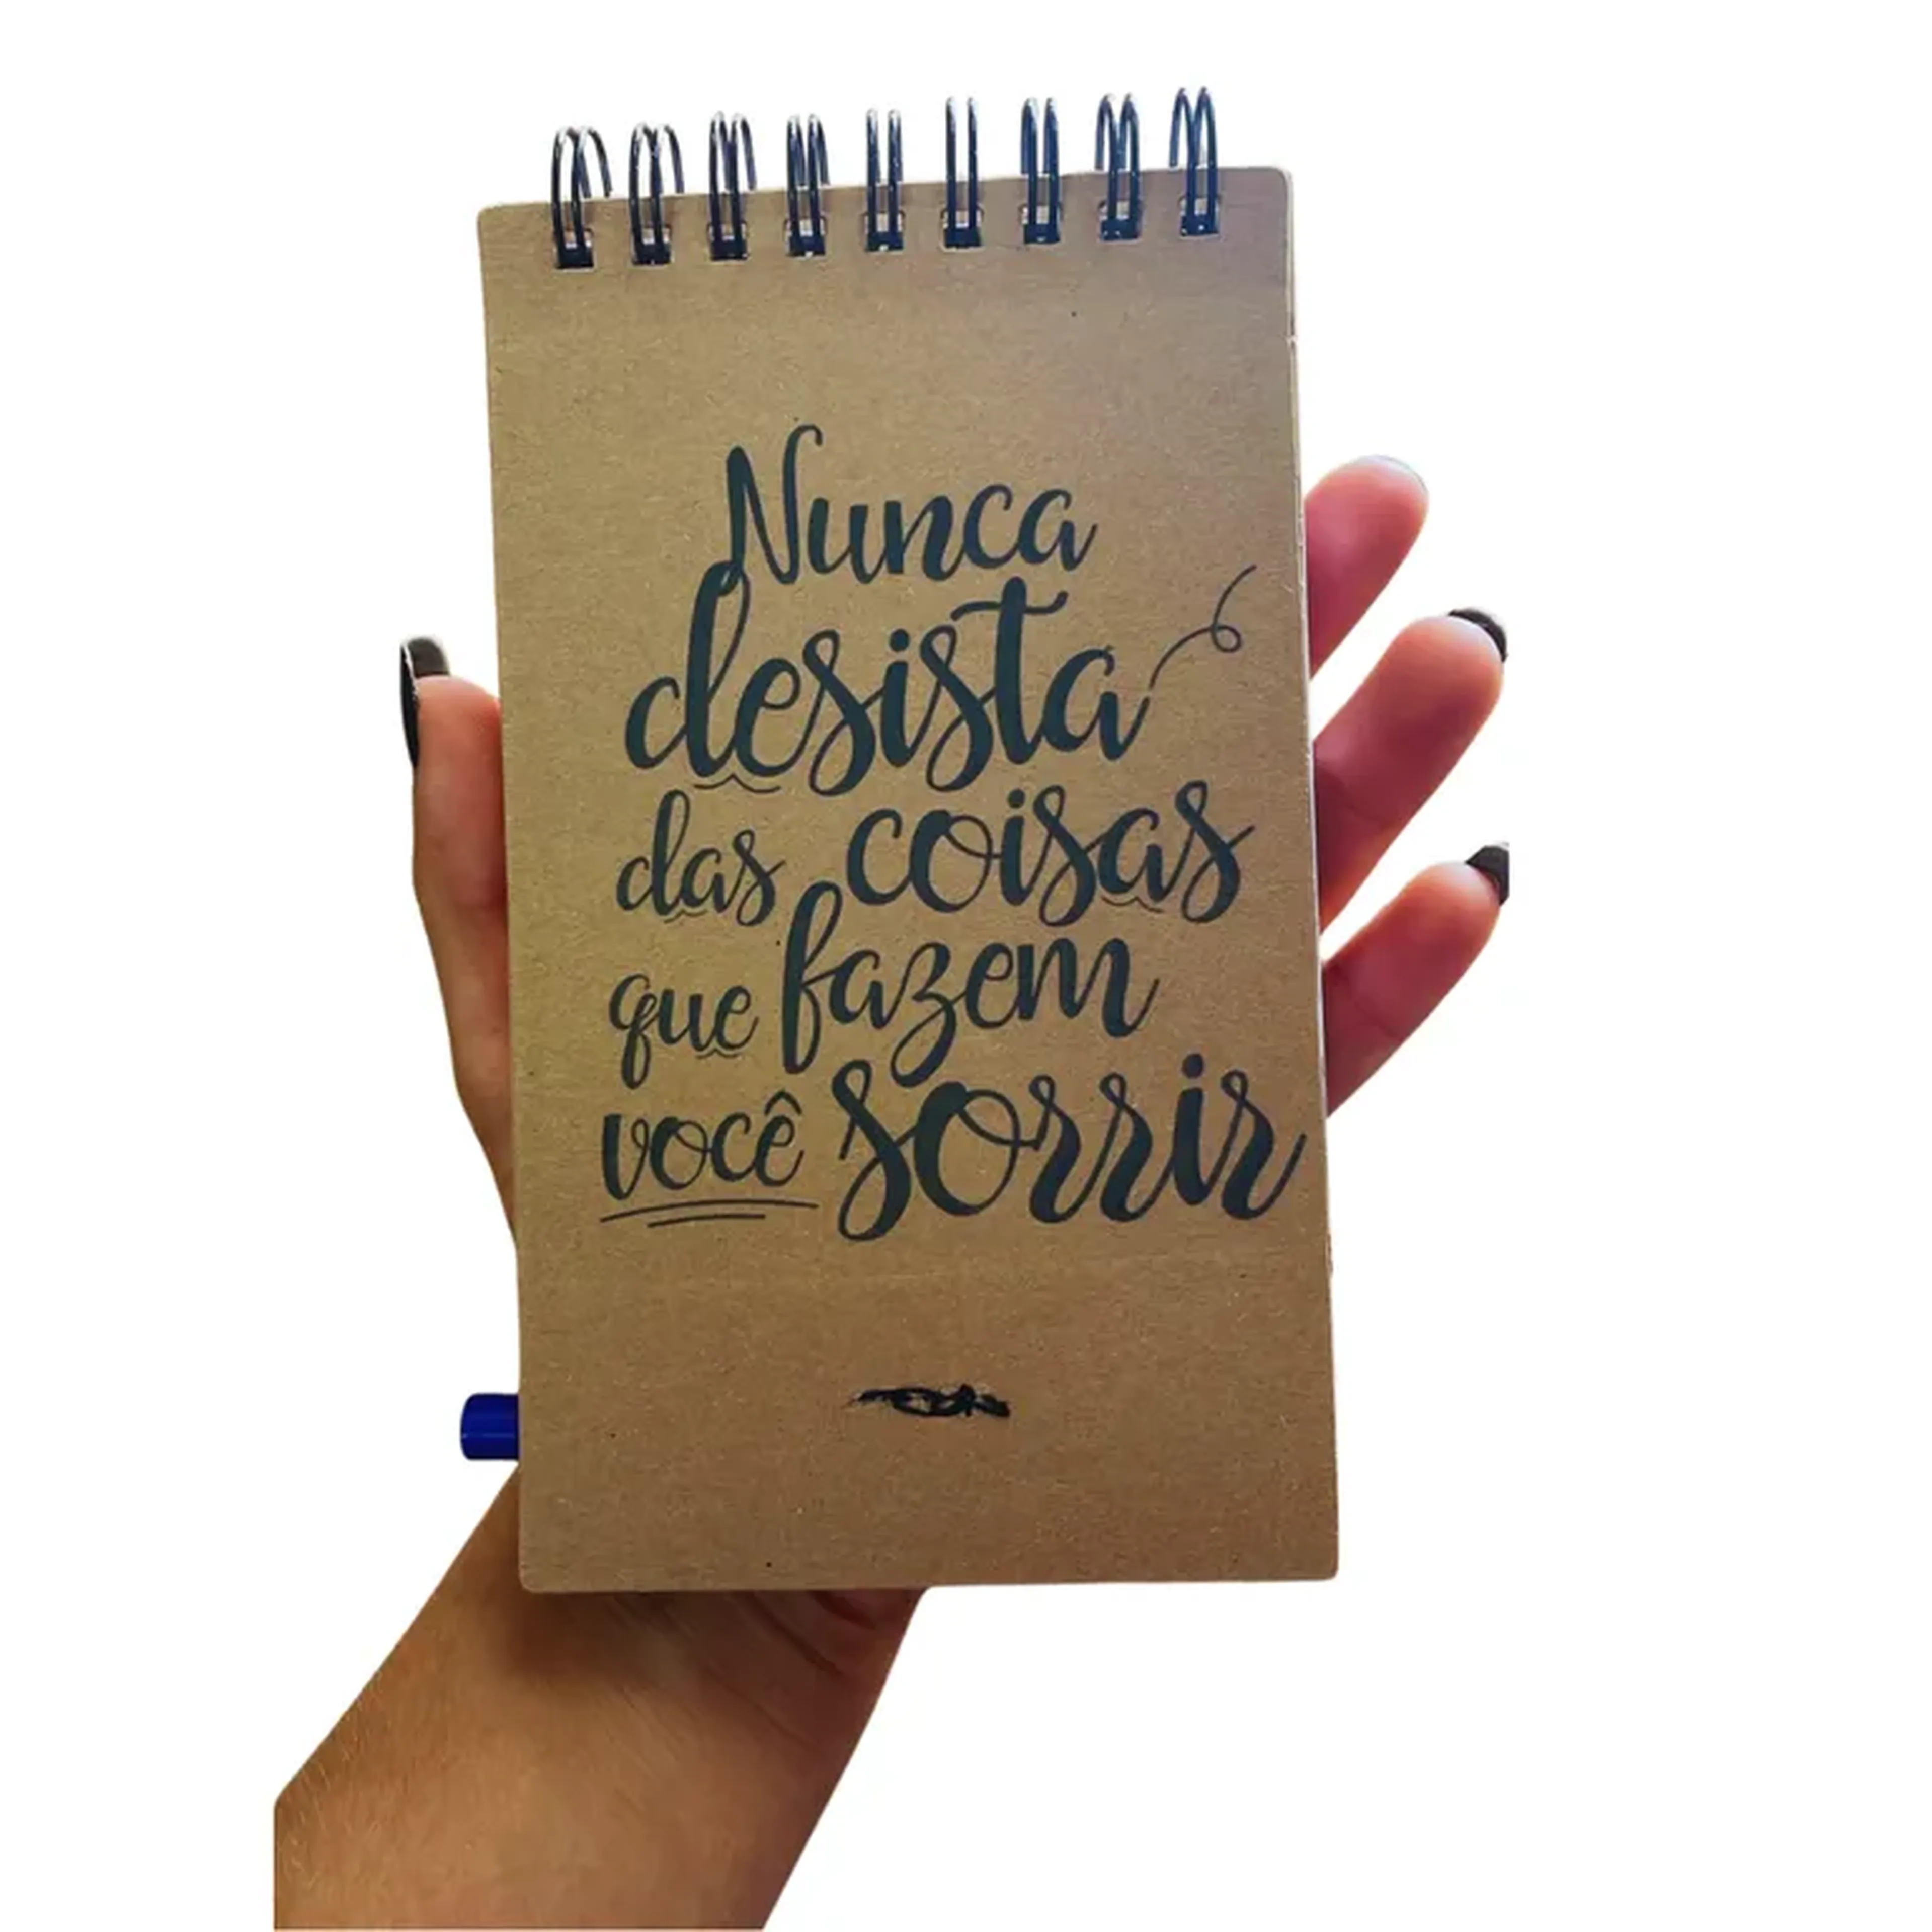 Nunca
desista
das coisas
que fazem
você sorrir